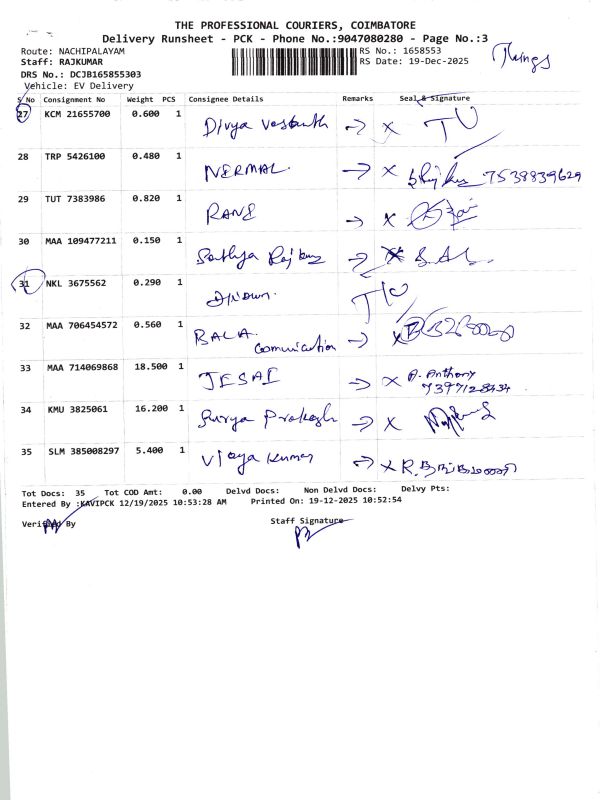 THE PROFESSIONAL COURIERS, COIMBATORE
Delivery Runsheet - PCK - Phone No.:9047080280 - Page No.:3
Route: NACHIPALAYAM RS No.: 1658553
Staff: RAJKUMAR RS Date: 19-Dec-2025
Things
DRS No.: DCJB165855303
Vehicle: EV Delivery
S No Consignment No Weight PCS Consignee Details Remarks Seal & Signature
27 KCM 21655700 0.600 1 Divya → x TU
28 TRP 5426100 0.480 1 NERMAL. → x 7538839629
29 TUT 7383986 0.820 1 RANE → x
30 MAA 109477211 0.150 1 Sathya → x
31 NKL 3675562 0.290 1
32 MAA 706454572 0.560 1 BALA. Comunication → x
33 MAA 714069868 18.500 1 JESAI → x A. Anthony
7397128434
34 KMU 3825061 16.200 1 Surya Prakash → x
35 SLM 385008297 5.400 1 Vijaya Kumar → x R.
Tot Docs: 35 Tot COD Amt: 0.00 Delvd Docs: Non Delvd Docs: Delvy Pts:
Entered By :KAVIPCK 12/19/2025 10:53:28 AM Printed On: 19-12-2025 10:52:54
Verified By Staff Signature